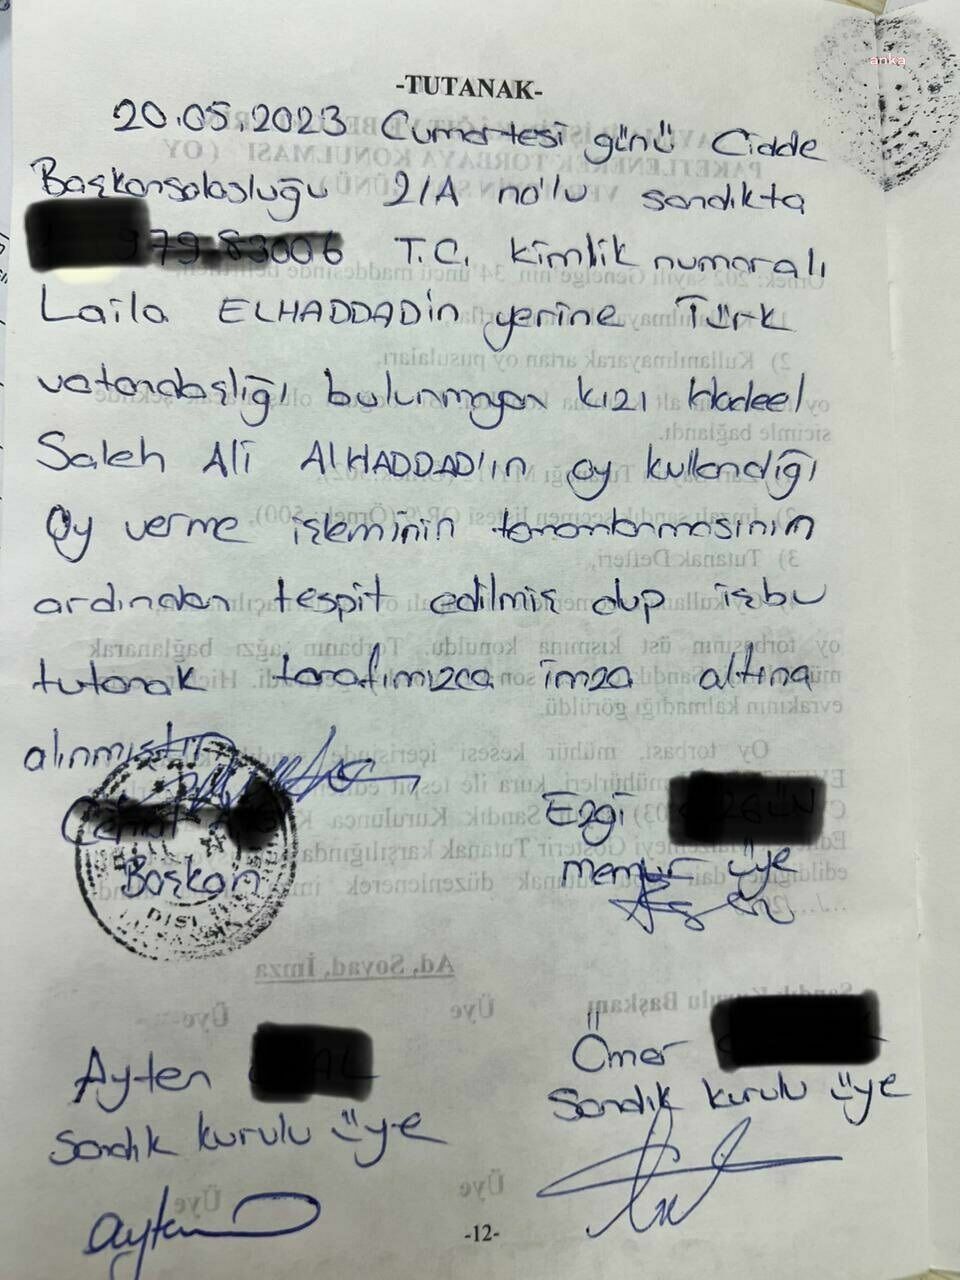 anka
-TUTANAK-
20.05.2023 Cumartesi günü Cidde
Başkonsolosluğu 2/A no'lu sandıkta
T.C. kimlik numaralı
Laila ELHADDADin yerine Türk
vatandaşlığı bulunmayan kızı Hadeel
Saleh Ali AlHADDAD'ın oy kullandığı
Oy verme işleminin tamamlanmasının
ardından tespit edilmiş olup işbu
tutanak tarafımızca imza altına
alınmıştır
Başkan
Ezgi
memur üye
Ayten
Sandık kurulu üye
Ayten
Ömer
Sandık kurulu üye
-12-